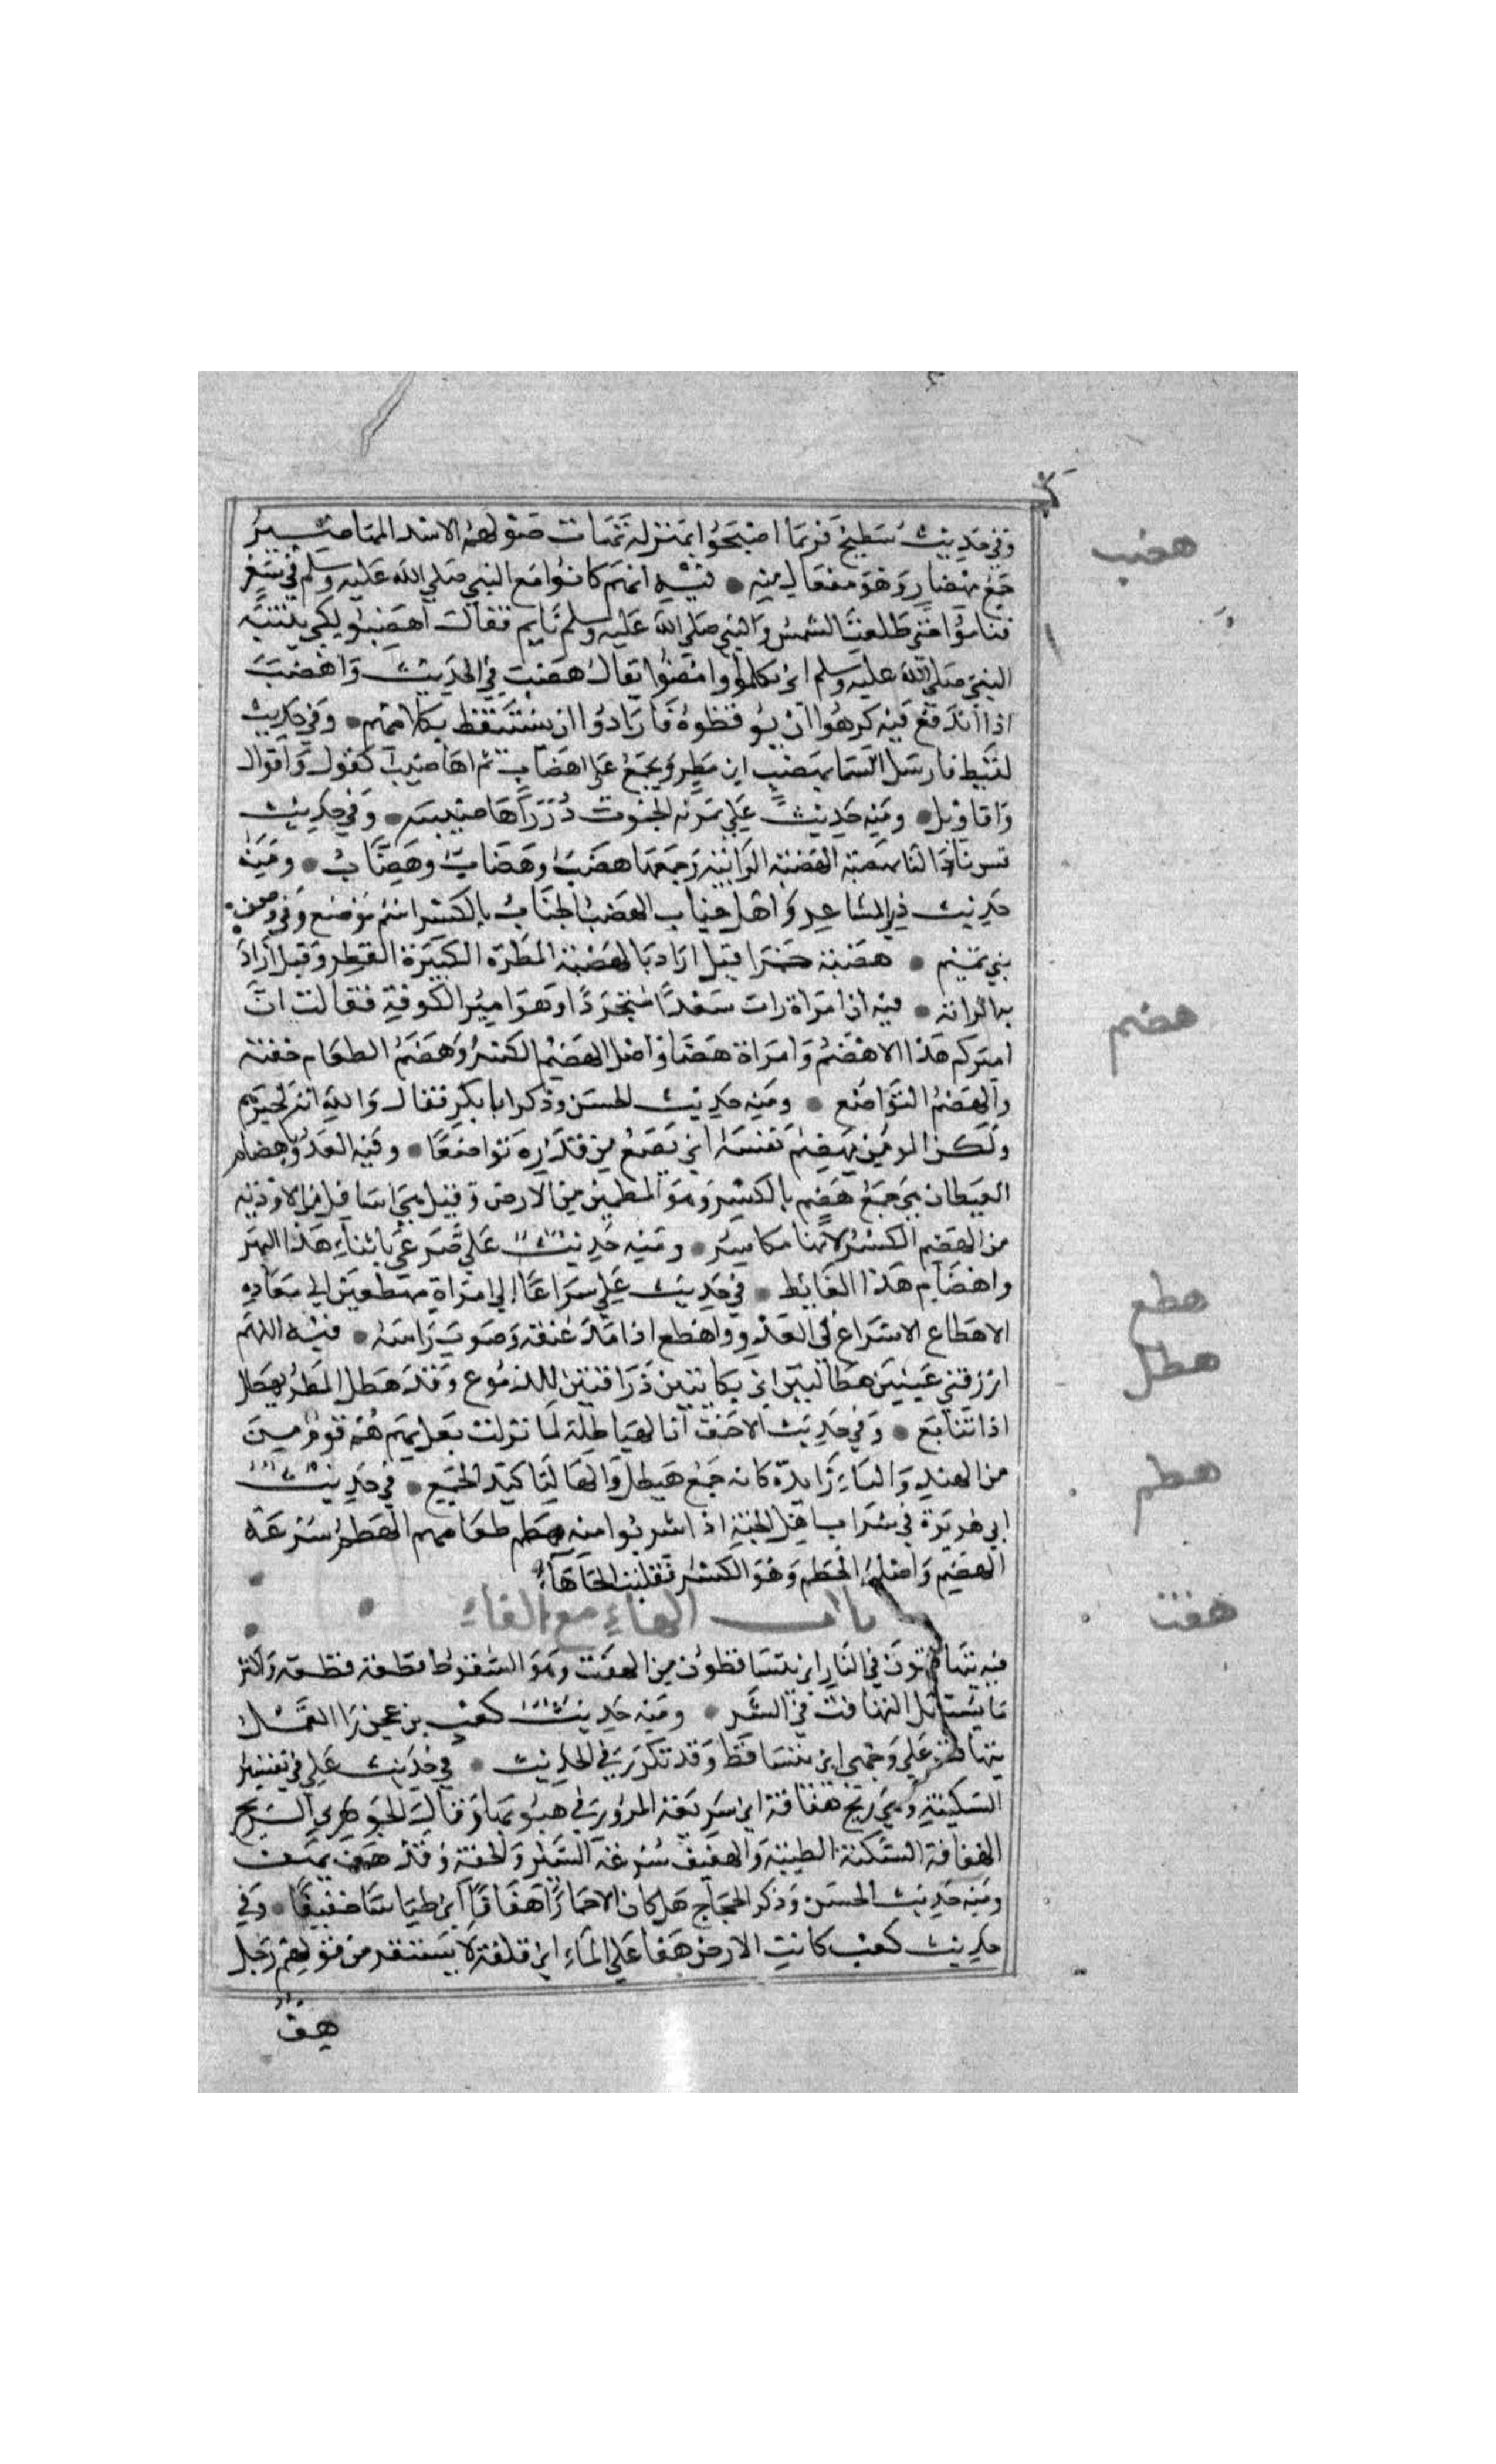 وفي حديث سطيح فربما اصبحوا بمنزلة تهاب صولهم الاسد المهاصير
جمع مهصار وهو مفعال منه • فيه انهم كانوا مع النبي صلي الله عليه وسلم في سفر
هضب
فناموا حتي طلعت الشمس والنبي صلي الله عليه وسلم نايم فقال اهضبوا لكي ينتبه
النبي صلي الله عليه وسلم اي تكلموا وامضوا يقال هضب في الحديث واهضب
اذا اندفع فيه كرهوا ان يوقظوه فارادوا ان يستيقظ بكلامهم • وفي حديث
لقيط فارسل السما بهضب اي مطر ويجمع علي اهضاب ثم اهاضيب كقول واقوال
واقاويل • ومنه حديث علي تمريه الجنوب درر اهاضيبه • وفي حديث
قس ماذا لنا بهضبة الهضبة الرابية وجمعها هضب وهضاب • ومنه
حديث ذي المشاعر واهل جناب الهضب الجناب بالكسر اسم موضع وفي وصف
بني تميم • هضبة حمرا قيل اراد بالهضبة المطرة الكبيرة القطر وقيل اراد
به الرابية • فيه ان امراة رات سعدا متجردا وهو امير الكوفة فقالت ان
هضم
اميركم هذا لاهضم وامراة هضما واصل الهضم الكسر وهضم الطعام خفته
والهضم التواضع • ومنه حديث الحسن وذكر ابا بكر فقال والله انه لخيرهم
ولكن المومن يهضم نفسه اي يضع من قدره تواضعا • وفيه العدو باهضام
الغيطان هي جمع هضم بالكسر وهو المطمين من الارض وقيل هي اسافل من الاودية
من الهضم الكسر لانها مكاسر • ومنه حديث علي صرعي باثناء هذا النهر
واهضام هذا الغايط • في حديث علي سراعا الي امره مهطعين الي معاده
هطع
الاهطاع الاسراع في العدو واهطع اذا مد عنقه وصوب راسه • فيه اللهم
هطل
ارزقني عينين هطالتين اي بكايتين ذرافتين للدموع وقد هطل المطر يهطل
اذا تتابع • وفي حديث الاحنف ان الهياطلة لما نزلت بعل بهم هم قوم من
من الهند والياء زايدة كانه جمع هيطل والها لتاكيد الجمع • في حديث
هطم
ابي هريرة في شراب اهل الجنة اذا شربوا منه هطم طعامهم الهطم سرعة
الهضم واصله الحطم وهو الكسر فقلبت الحا هاء
باب الهاء مع الفاء
هفت
فيه يتهافتون في النار اي يتساقطون من الهفت وهو السقوط قطعة قطعة واكثر
ما يستعمل التهافت في الشر • ومنه حديث كعب بن عجرة والقمل
يتهافت علي وجهي اي يتساقط وقد تكرر في الحديث • في حديث علي في تفسير
السكينة وهي ريح هفافة اي سريعة المرور في هبوبها وقال الجوهري الريح
الهفافة الساكنة الطيبة والهفيف سرعة السير والخفة وقد هف يهف
ومنه حديث الحسن وذكر الحجاج هل كان الا حمارا هفافا اي طياشا خفيفا • وفي
حديث كعب كانت الارض هفا علي الماء اي قلقة لا تستقر من قولهم رجل
هف